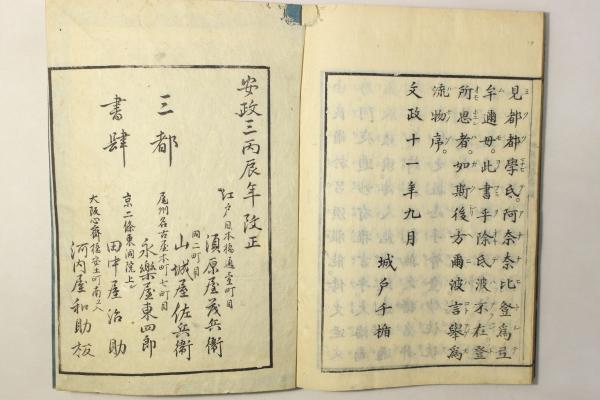 見都都學氐。阿奈奈比登爲弖
牟邇母。此書乎除氐波不在登
所思者。如斯後方爾波言擧爲
流物序。
文政十一年九月
城戸千楯
安政三丙辰年改正
三都
書肆
江戸日本橋通壹町目
須原屋茂兵衞
同二町目
山城屋佐兵衞
尾州名古屋本町七町目
永樂屋東四郎
京二條東洞院上ル
田中屋治助
大阪心齋橋安土町南エ入
河内屋和助板